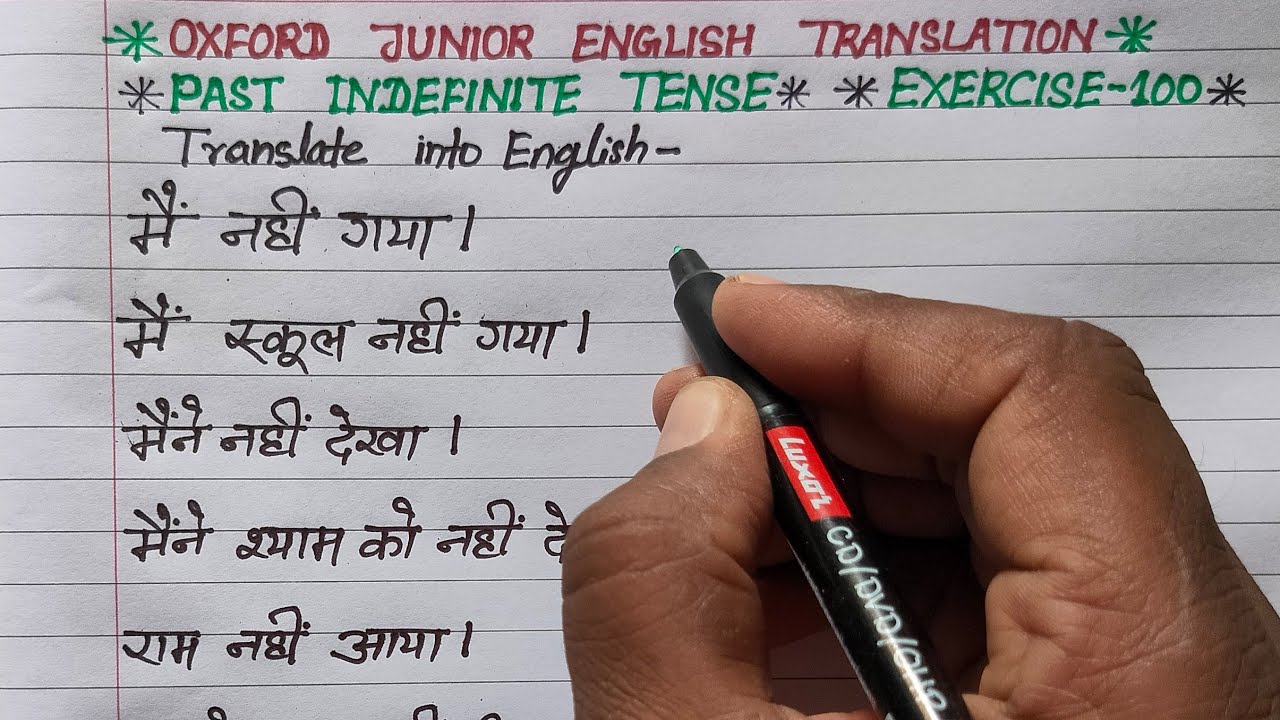 * OXFORD JUNIOR ENGLISH TRANSLATION *
* PAST INDEFINITE TENSE * * EXERCISE-100 *
Translate into English-
मैं नहीं गया।
मैं स्कूल नहीं गया।
मैंने नहीं देखा।
मैंने श्याम को नहीं
राम नहीं आया।
Luxor
CD/DVD/OHP